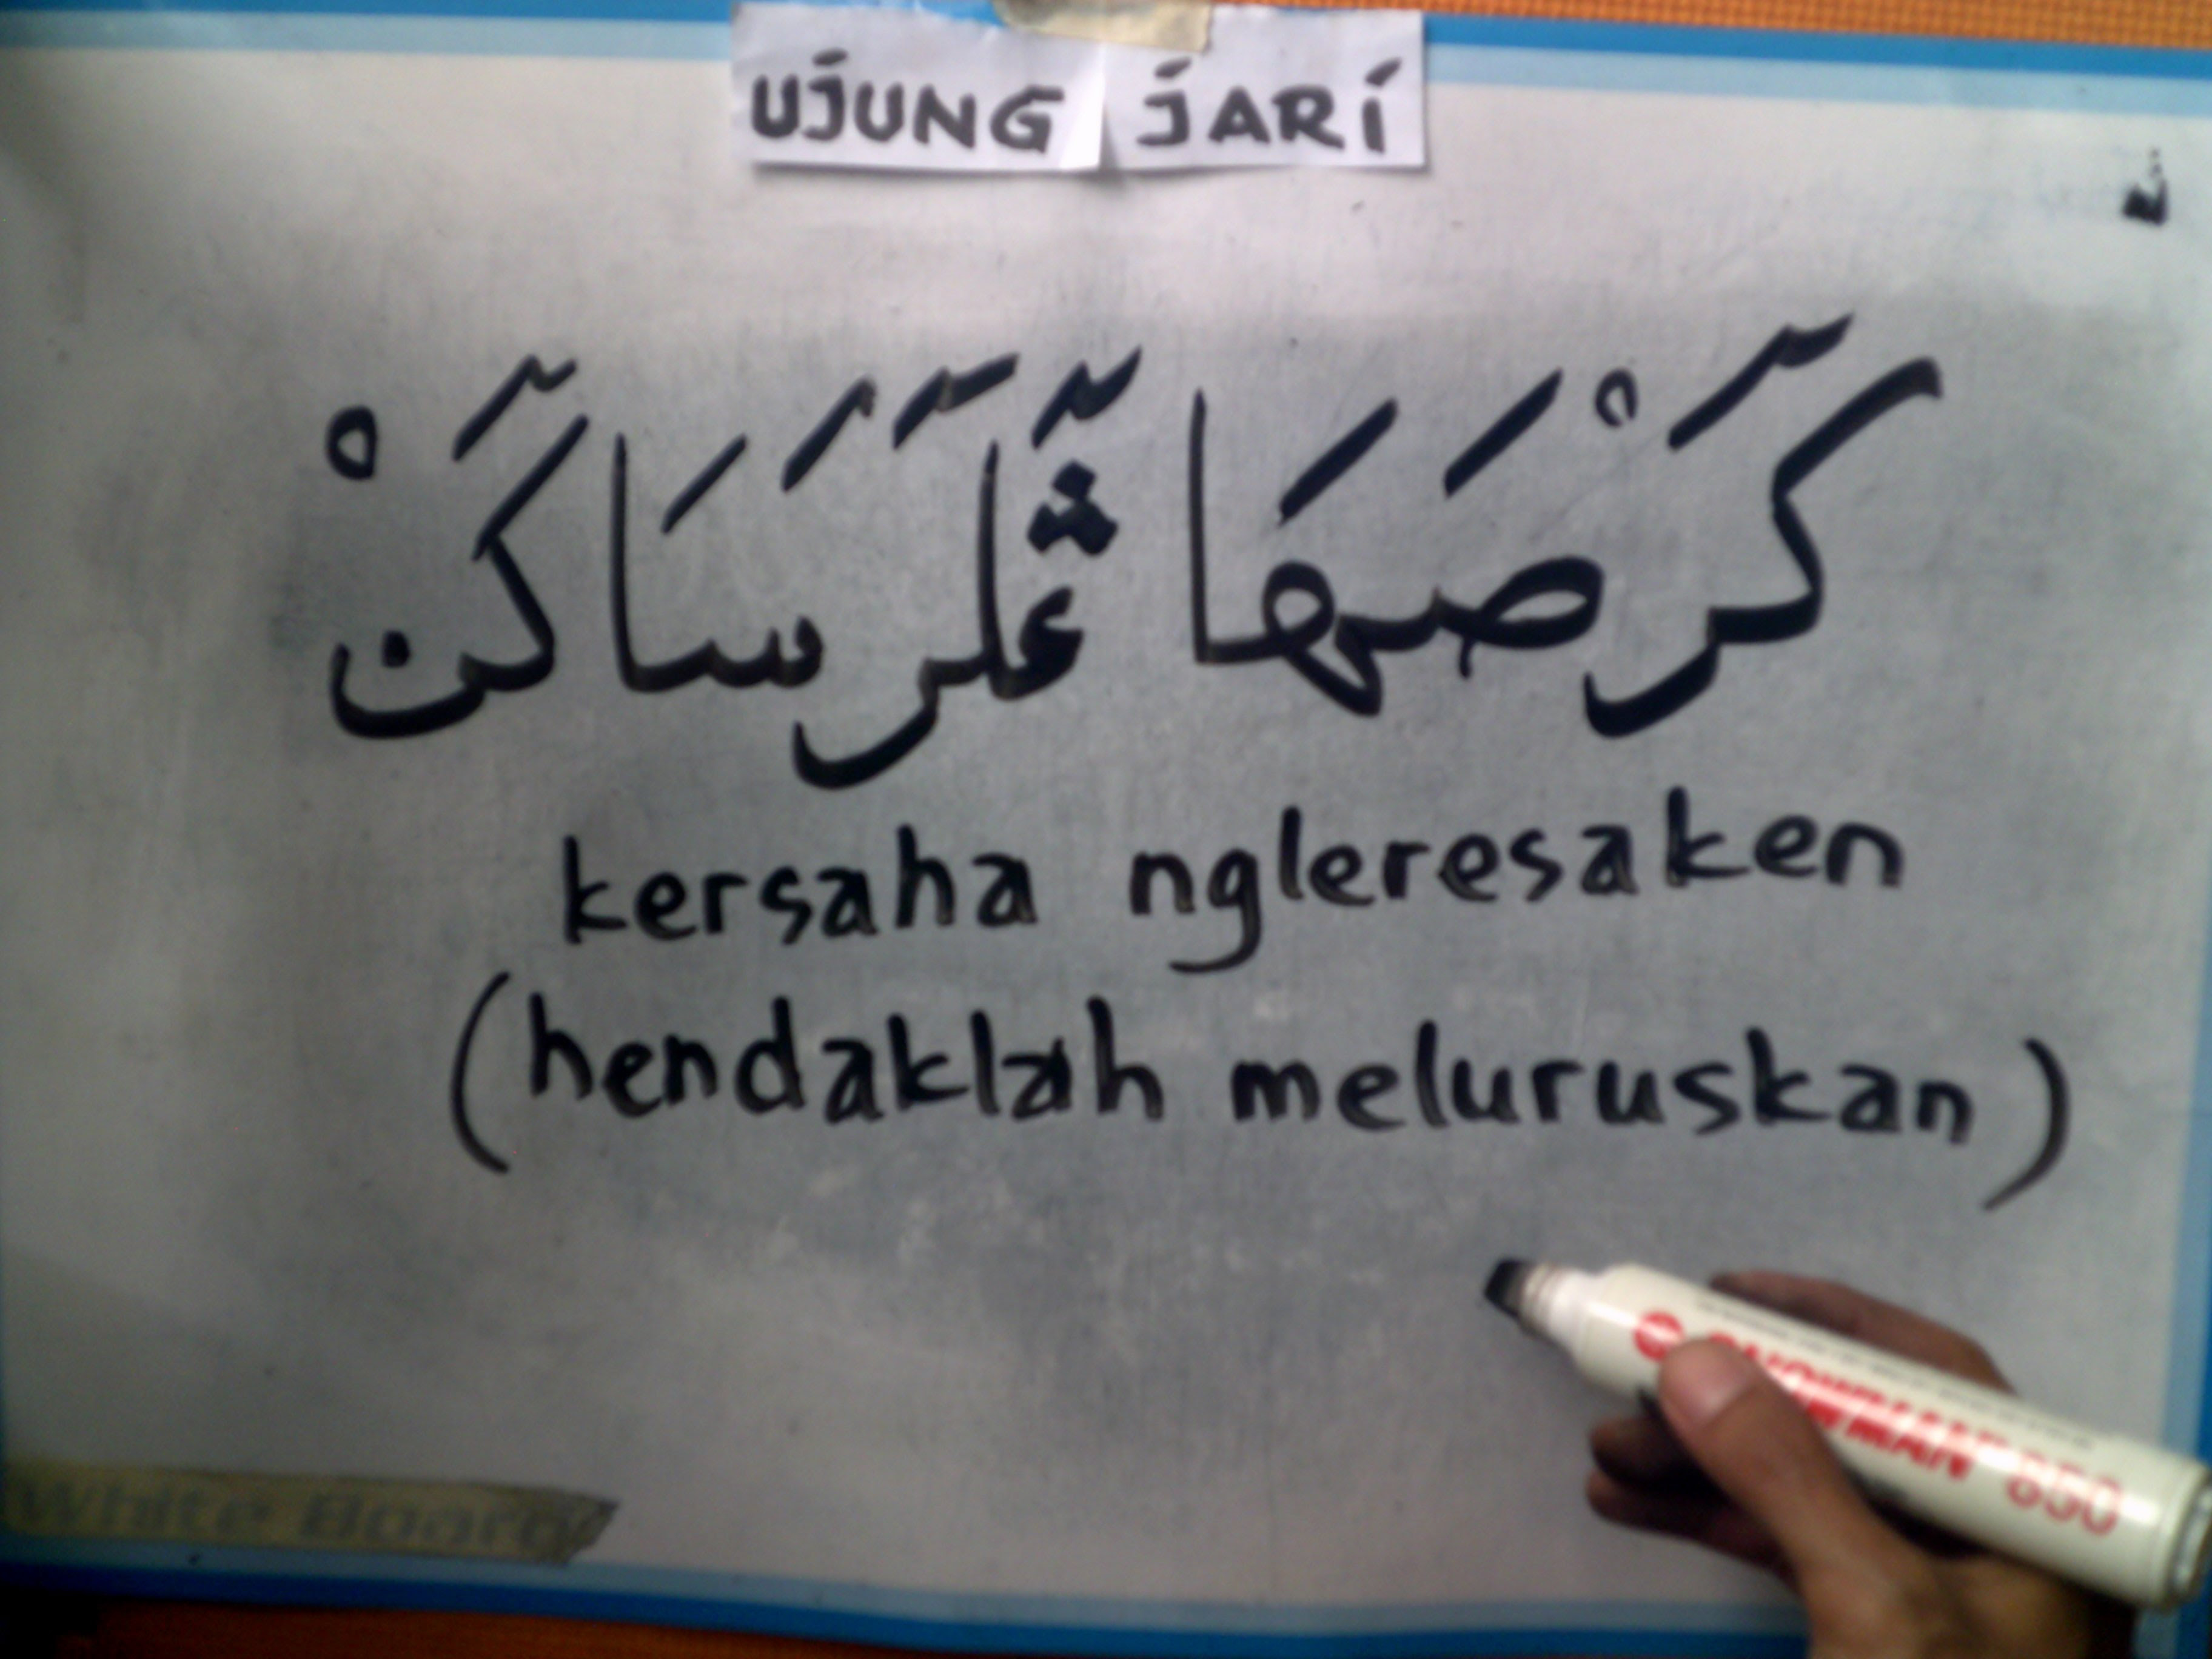 UJUNG JARI
كَٓرْصَهَا ڠَٓلَٓرَسَاكَٓنْ
kersaha ngleresaken
(hendaklah meluruskan)
SNOWMAN 850
White Board